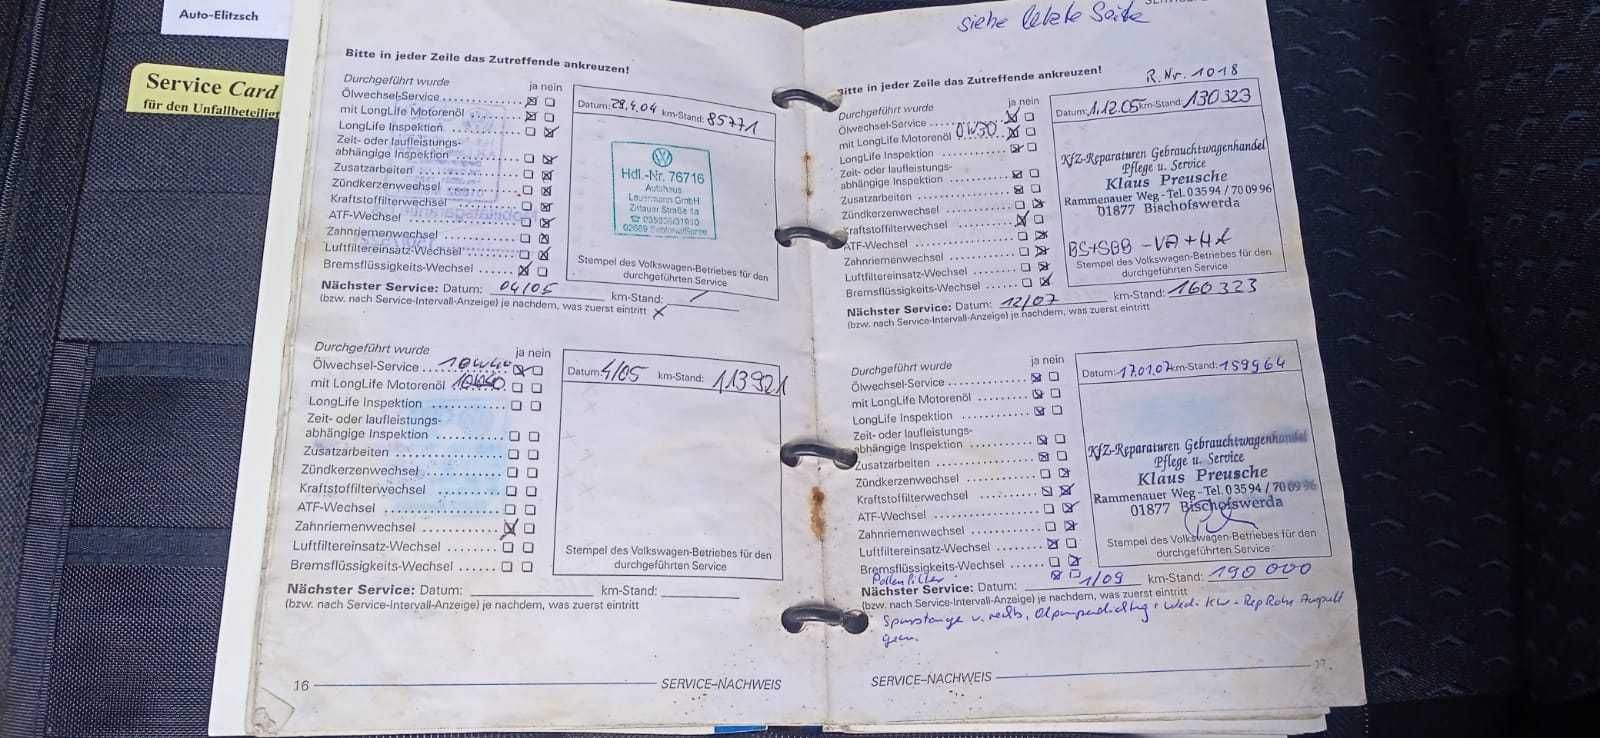 Auto-Elitzsch
Service Card
für den Unfallbeteiligt
Bitte in jeder Zeile das Zutreffende ankreuzen!
Durchgeführt wurde ja nein
Ölwechsel-Service
mit LongLife Motorenöl
LongLife Inspektion
Zeit- oder laufleistungs-
abhängige Inspektion
Zusatzarbeiten
Zündkerzenwechsel
Kraftstoffilterwechsel
ATF-Wechsel
Zahnriemenwechsel
Luftfiltereinsatz-Wechsel
Bremsflüssigkeits-Wechsel
Datum: 28.4.04 km-Stand: 85771
Hdl.-Nr. 76716
Autohaus
Lauermann GmbH
Zittauer Straße 1a
02689 Sohland/Spree
Stempel des Volkswagen-Betriebes für den
durchgeführten Service
Nächster Service: Datum: 04/05 km-Stand: /
(bzw. nach Service-Intervall-Anzeige) je nachdem, was zuerst eintritt
Durchgeführt wurde ja nein
Ölwechsel-Service 10W40
mit LongLife Motorenöl
LongLife Inspektion
Zeit- oder laufleistungs-
abhängige Inspektion
Zusatzarbeiten
Zündkerzenwechsel
Kraftstoffilterwechsel
ATF-Wechsel
Zahnriemenwechsel
Luftfiltereinsatz-Wechsel
Bremsflüssigkeits-Wechsel
Datum: 4/05 km-Stand: 113921
Stempel des Volkswagen-Betriebes für den
durchgeführten Service
Nächster Service: Datum: km-Stand:
(bzw. nach Service-Intervall-Anzeige) je nachdem, was zuerst eintritt
16 SERVICE–NACHWEIS
siehe letzte Seite
Bitte in jeder Zeile das Zutreffende ankreuzen!
R.Nr. 1018
Durchgeführt wurde ja nein
Ölwechsel-Service
mit LongLife Motorenöl 0W30
LongLife Inspektion
Zeit- oder laufleistungs-
abhängige Inspektion
Zusatzarbeiten
Zündkerzenwechsel
Kraftstoffilterwechsel
ATF-Wechsel
Zahnriemenwechsel
Luftfiltereinsatz-Wechsel
Bremsflüssigkeits-Wechsel
Datum: 1.12.05 km-Stand: 130323
Kfz-Reparaturen Gebrauchtwagenhandel
Pflege u. Service
Klaus Preusche
Rammenauer Weg - Tel. 03594 / 700996
01877 Bischofswerda
Stempel des Volkswagen-Betriebes für den
durchgeführten Service
Nächster Service: Datum: 12/07 km-Stand: 160323
(bzw. nach Service-Intervall-Anzeige) je nachdem, was zuerst eintritt
Durchgeführt wurde ja nein
Ölwechsel-Service
mit LongLife Motorenöl
LongLife Inspektion
Zeit- oder laufleistungs-
abhängige Inspektion
Zusatzarbeiten
Zündkerzenwechsel
Kraftstoffilterwechsel
ATF-Wechsel
Zahnriemenwechsel
Luftfiltereinsatz-Wechsel
Bremsflüssigkeits-Wechsel
Pollenfilter
Datum: 17.01.07 km-Stand: 159964
Kfz-Reparaturen Gebrauchtwagenhandel
Pflege u. Service
Klaus Preusche
Rammenauer Weg - Tel. 03594 / 700996
01877 Bischofswerda
Stempel des Volkswagen-Betriebes für den
durchgeführten Service
Nächster Service: Datum: 1/09 km-Stand: 190 000
(bzw. nach Service-Intervall-Anzeige) je nachdem, was zuerst eintritt
Spurstange v. rechts,
SERVICE–NACHWEIS